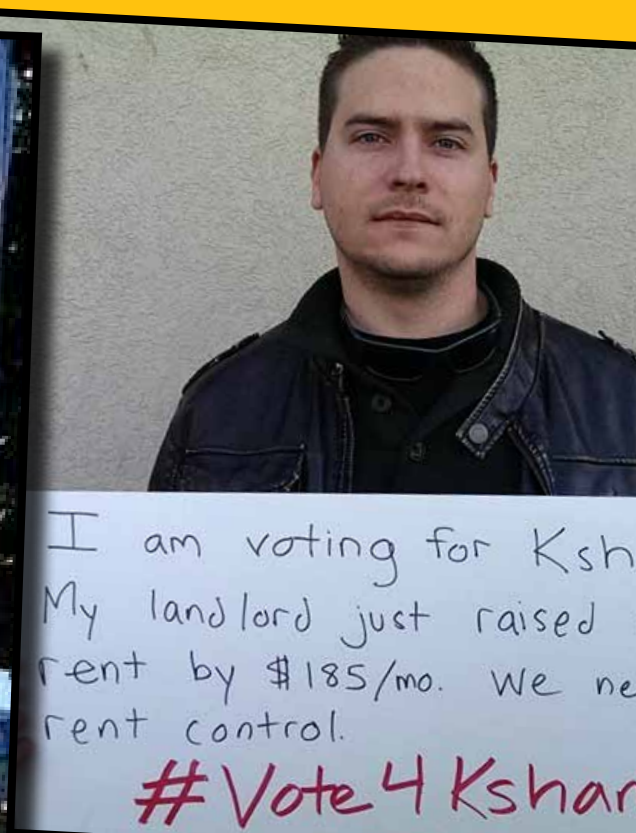 I am voting for Ksh
My landlord just raised
rent by $185/mo. We ne
rent control.
#Vote4Kshar